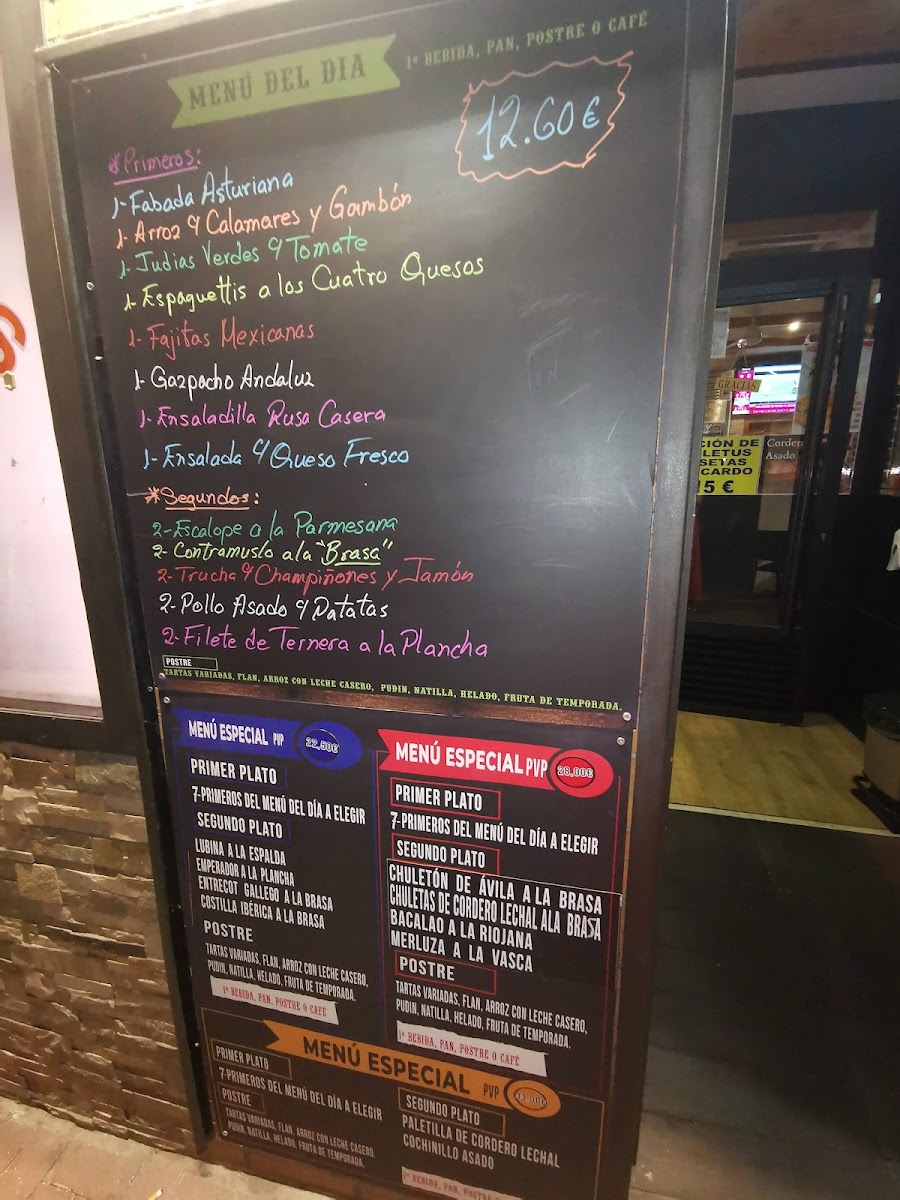 MENÚ DEL DIA
1ª BEBIDA, PAN, POSTRE O CAFÉ
12.60€
*Primeros:
1-Fabada Asturiana
1-Arroz y Calamares y Gambón
1-Judias Verdes y Tomate
1-Espaguettis a los Cuatro Quesos
1-Fajitas Mexicanas
1-Gazpacho Andaluz
1-Ensaladilla Rusa Casera
1-Ensalada y Queso Fresco
*Segundos:
2-Escalope a la Parmesana
2-Contramuslo a la "Brasa"
2-Trucha y Champiñones y Jamón
2-Pollo Asado y Patatas
2-Filete de Ternera a la Plancha
POSTRE
TARTAS VARIADAS, FLAN, ARROZ CON LECHE CASERO, PUDIN, NATILLA, HELADO, FRUTA DE TEMPORADA.
MENÚ ESPECIAL PVP 22,50€
PRIMER PLATO
7-PRIMEROS DEL MENÚ DEL DÍA A ELEGIR
SEGUNDO PLATO
LUBINA A LA ESPALDA
EMPERADOR A LA PLANCHA
ENTRECOT GALLEGO A LA BRASA
COSTILLA IBÉRICA A LA BRASA
POSTRE
TARTAS VARIADAS, FLAN, ARROZ CON LECHE CASERO,
PUDIN, NATILLA, HELADO, FRUTA DE TEMPORADA.
1ª BEBIDA, PAN, POSTRE O CAFÉ
MENÚ ESPECIAL PVP 28,00€
PRIMER PLATO
7-PRIMEROS DEL MENÚ DEL DÍA A ELEGIR
SEGUNDO PLATO
CHULETÓN DE ÁVILA A LA BRASA
CHULETAS DE CORDERO LECHAL ALA BRASA
BACALAO A LA RIOJANA
MERLUZA A LA VASCA
POSTRE
TARTAS VARIADAS, FLAN, ARROZ CON LECHE CASERO,
PUDIN, NATILLA, HELADO, FRUTA DE TEMPORADA.
1ª BEBIDA, PAN, POSTRE O CAFÉ
MENÚ ESPECIAL PVP
PRIMER PLATO
7-PRIMEROS DEL MENÚ DEL DÍA A ELEGIR
POSTRE
TARTAS VARIADAS, FLAN, ARROZ CON LECHE CASERO,
PUDIN, NATILLA, HELADO, FRUTA DE TEMPORADA.
SEGUNDO PLATO
PALETILLA DE CORDERO LECHAL
COCHINILLO ASADO
1ª BEBIDA, PAN, POSTRE O CAFÉ
GRACIAS
CIÓN DE
LETUS
SETAS
CARDO
5 €
Corder
Asado